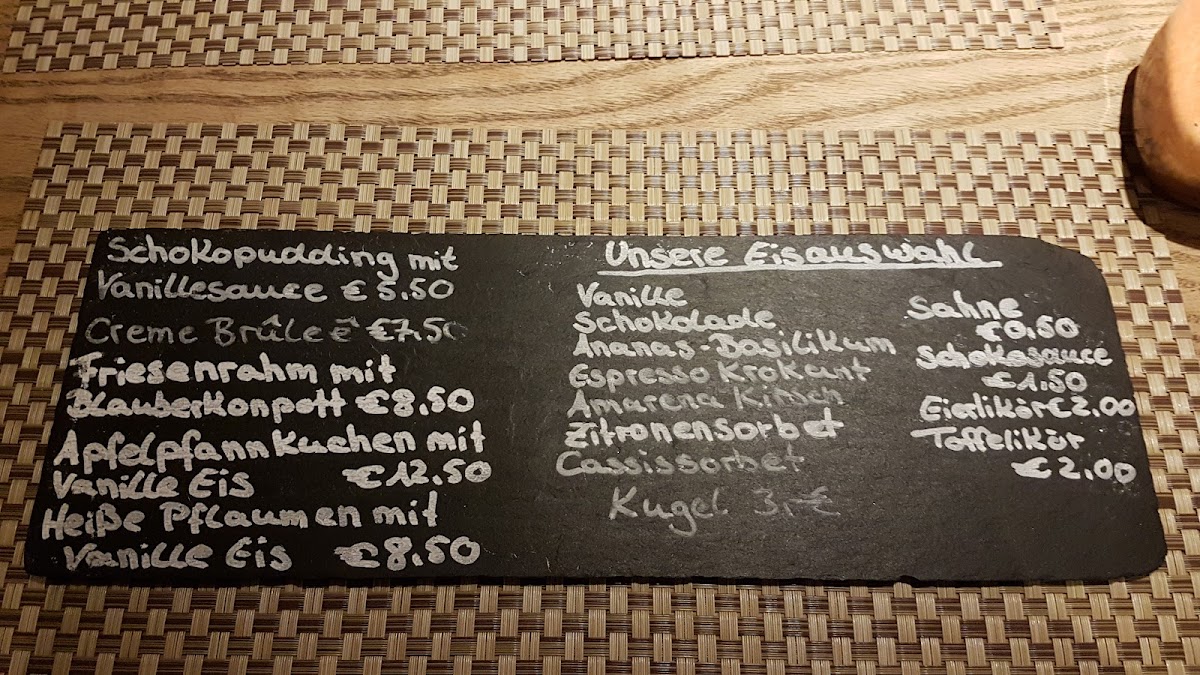 Schokopudding mit
Vanillesauce € 5.50
Creme Brûleē €7,50
Friesenrahm mit
Blauberkonpott €8.50
Apfelpfannkuchen mit
Vanille Eis €12.50
Heiße Pflaumen mit
Vanille Eis €8.50
Unsere Eisauswahl
Vanille
Schokolade
Ananas-Basilikum
Espresso Krokant
Amarena Kirsch
Zitronensorbet
Cassissorbet
Kugel 3,-€
Sahne
€0.50
Schokosauce
€1.50
Eierlikör€2.00
Toffelikör
€2.00